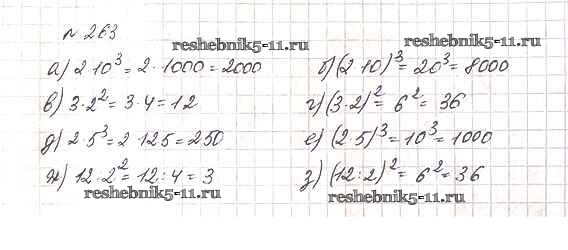 № 263
reshebnik5-11.ru
reshebnik5-11.ru
а) 2·10³ = 2·1000 = 2000 б) (2·10)³ = 20³ = 8000
в) 3·2² = 3·4 = 12 г) (3·2)² = 6² = 36
д) 2·5³ = 2·125 = 250 е) (2·5)³ = 10³ = 1000
ж) 12:2² = 12:4 = 3 з) (12:2)² = 6² = 36
reshebnik5-11.ru reshebnik5-11.ru